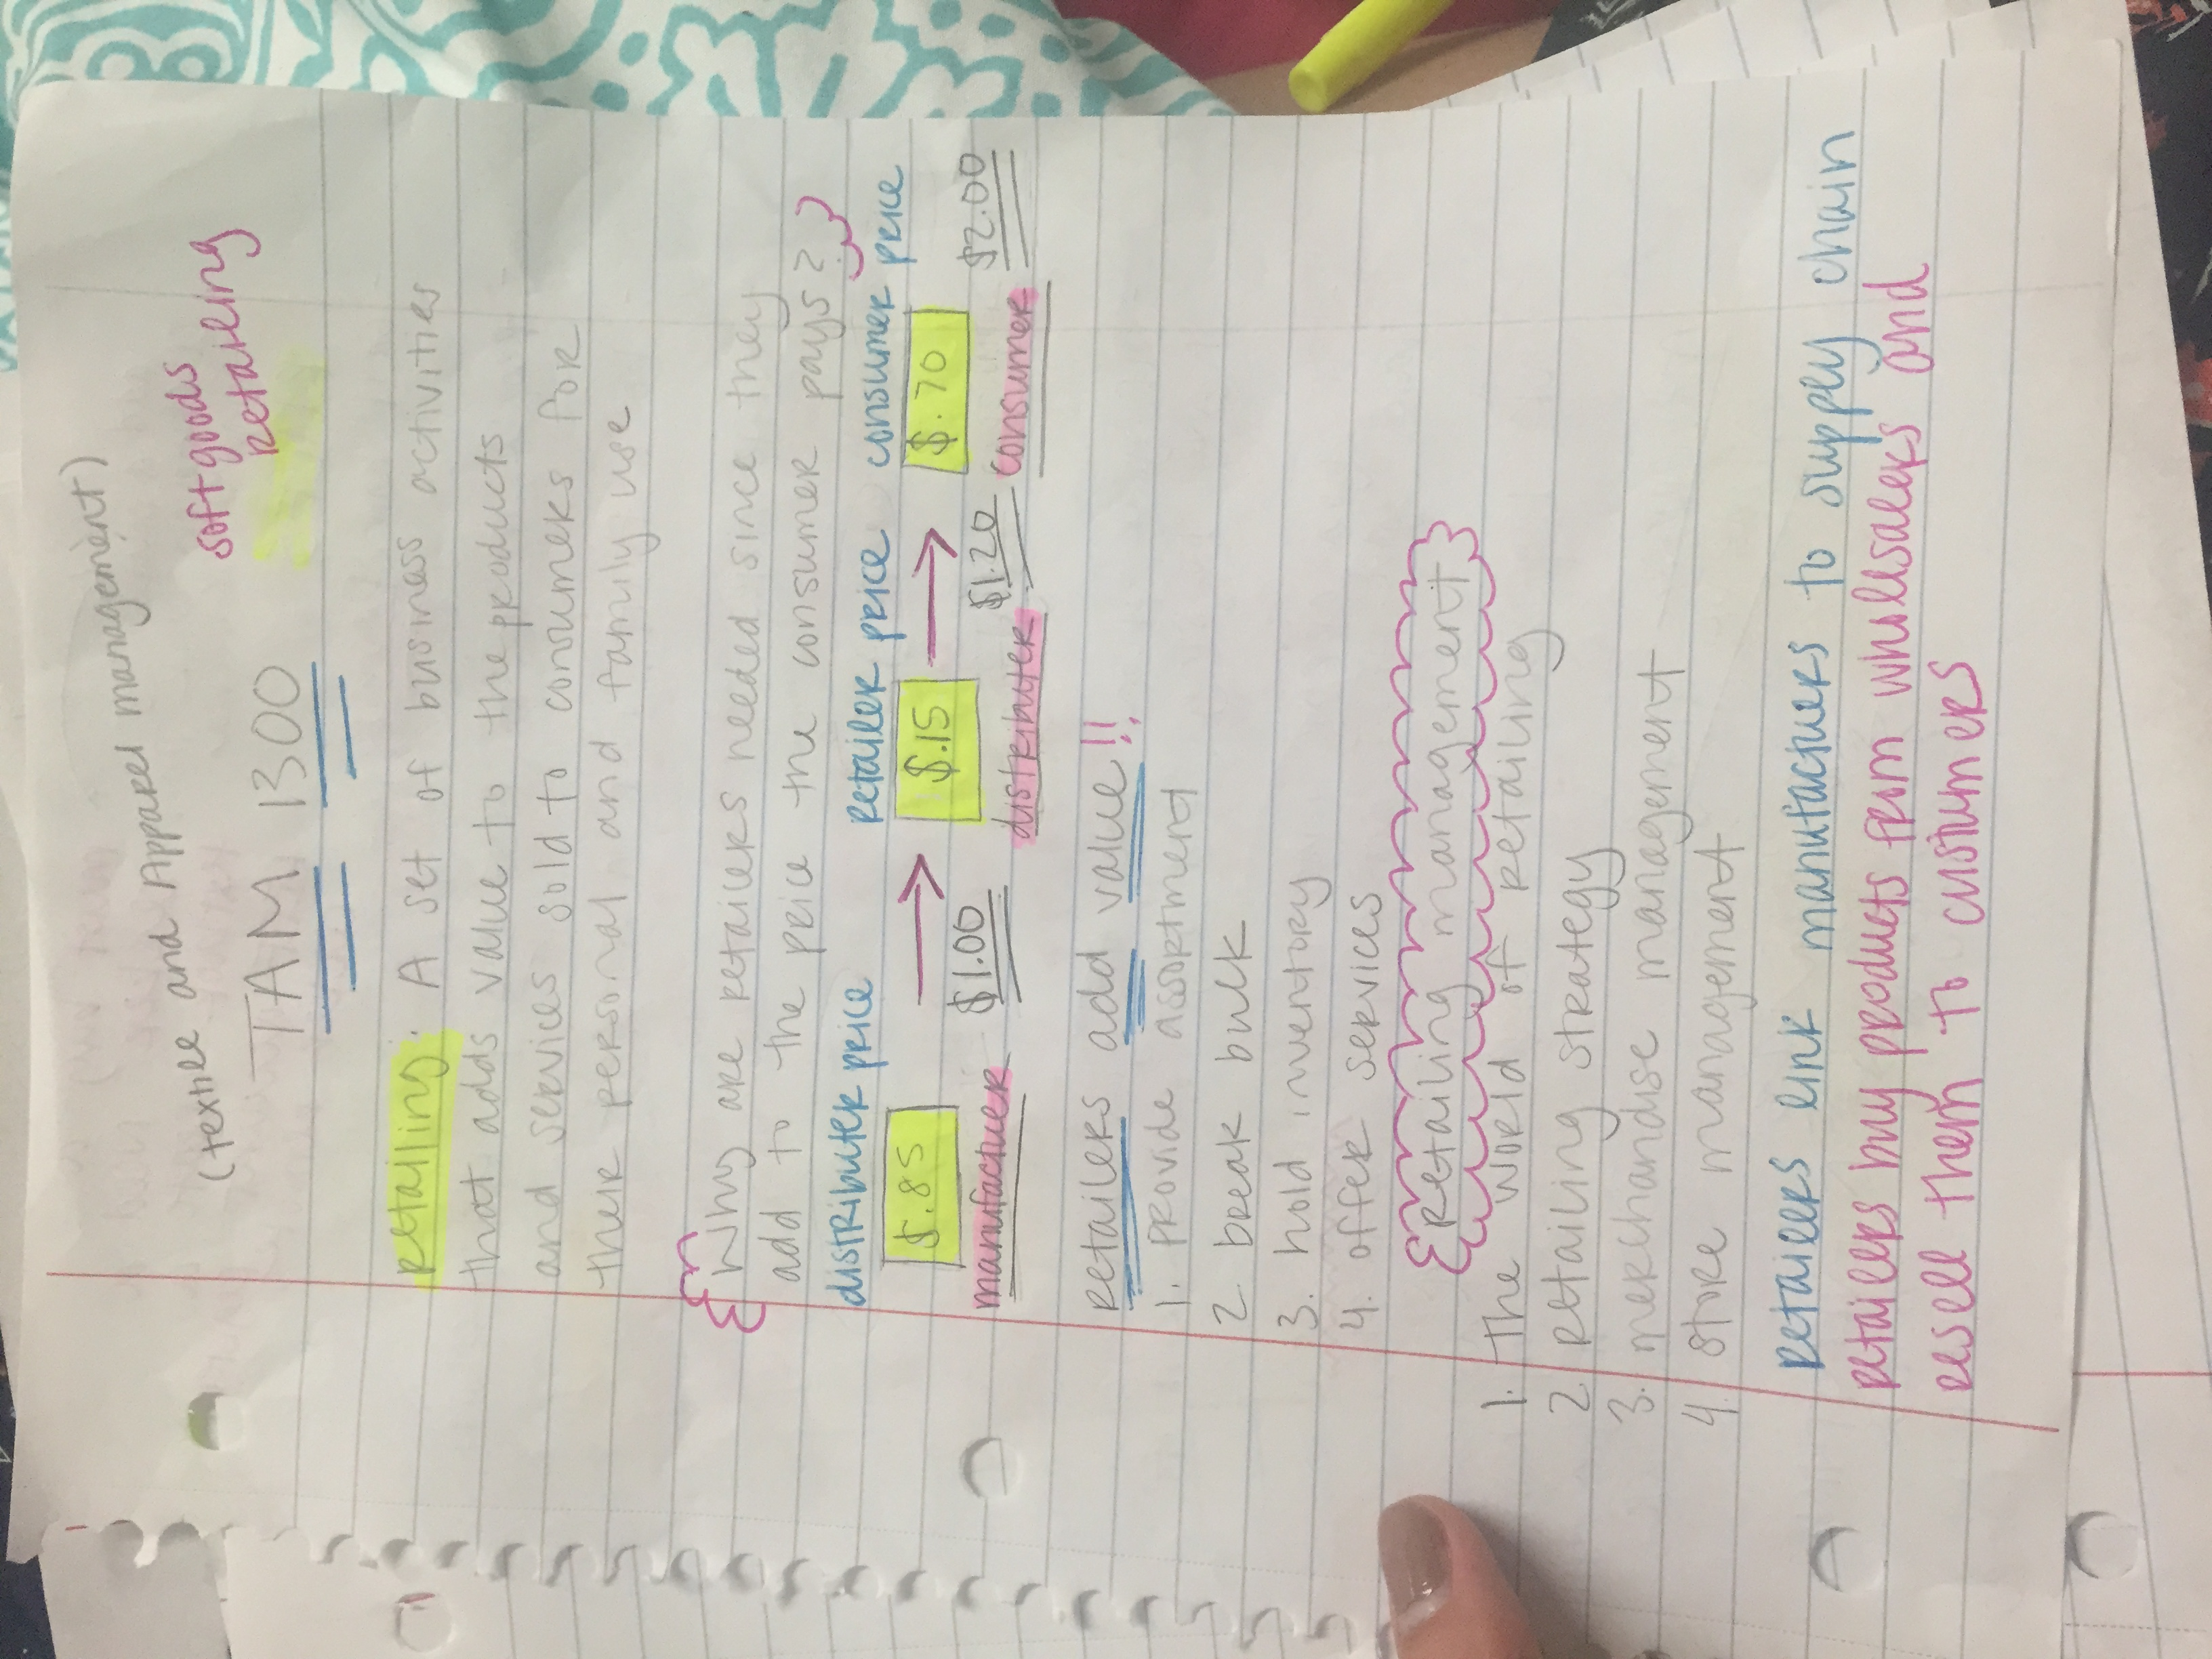 (textile and Apparel management)
TAM 1300
softgoods
retailing
retailing: A set of business activities
that adds value to the products
and services sold to consumers for
their personal and family use
Why are retailers needed since they
add to the price the consumer pays?
distributer price retailer price consumer price
$.85 $.15 $.70
$1.00 $1.20 $2.00
manufacturer distributer consumer
retailers add value!!
1. provide assortment
2. break bulk
3. hold inventory
4. offer services
retailing management
1. The world of retailing
2. retailing strategy
3. merkhandise management
4. store management
retailers link manufacturers to supply chain
retailers buy products from wholesalers and
resell them to customers